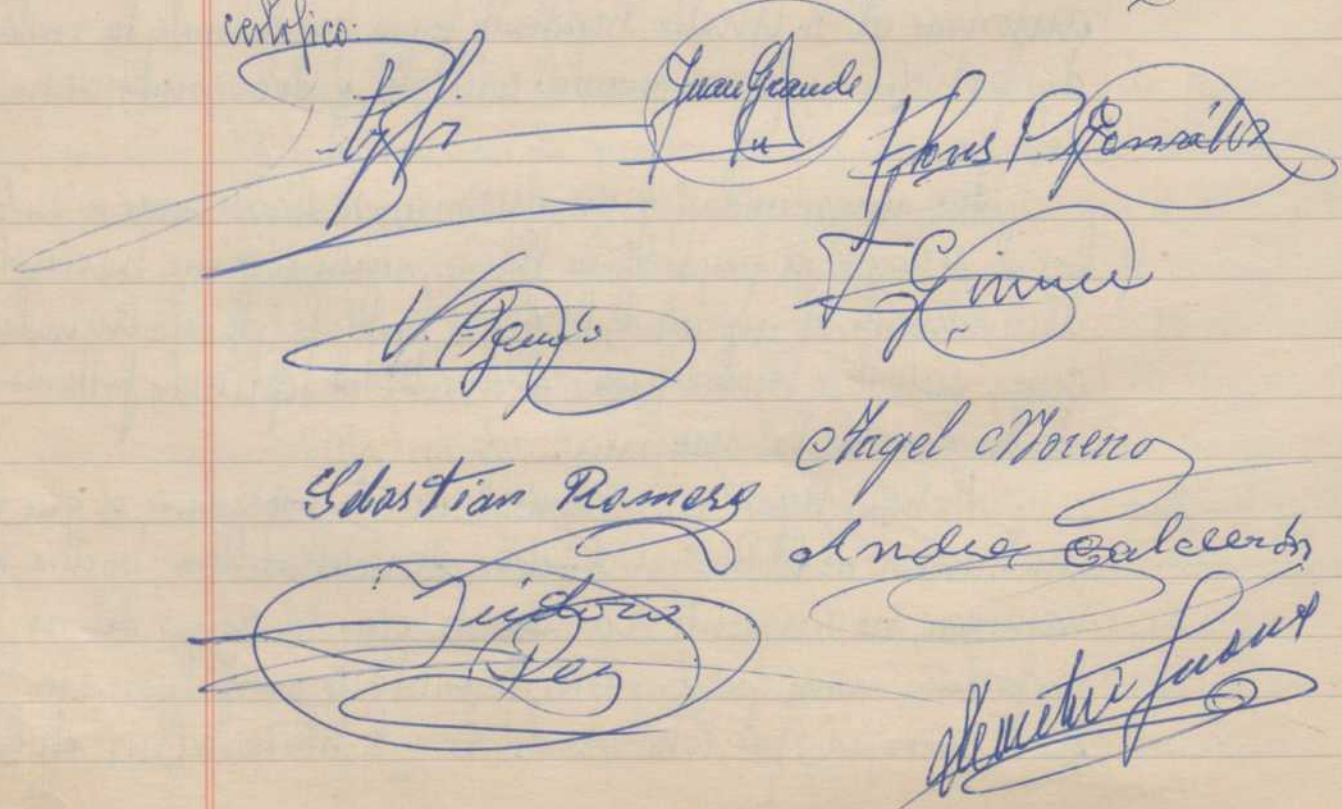 certifico:
Juan Grande
Flores P González
V. 
F Gimenez
Angel Moreno
Sebastian Romero
Andres Calderón
Isidoro
Rey
Demetrio